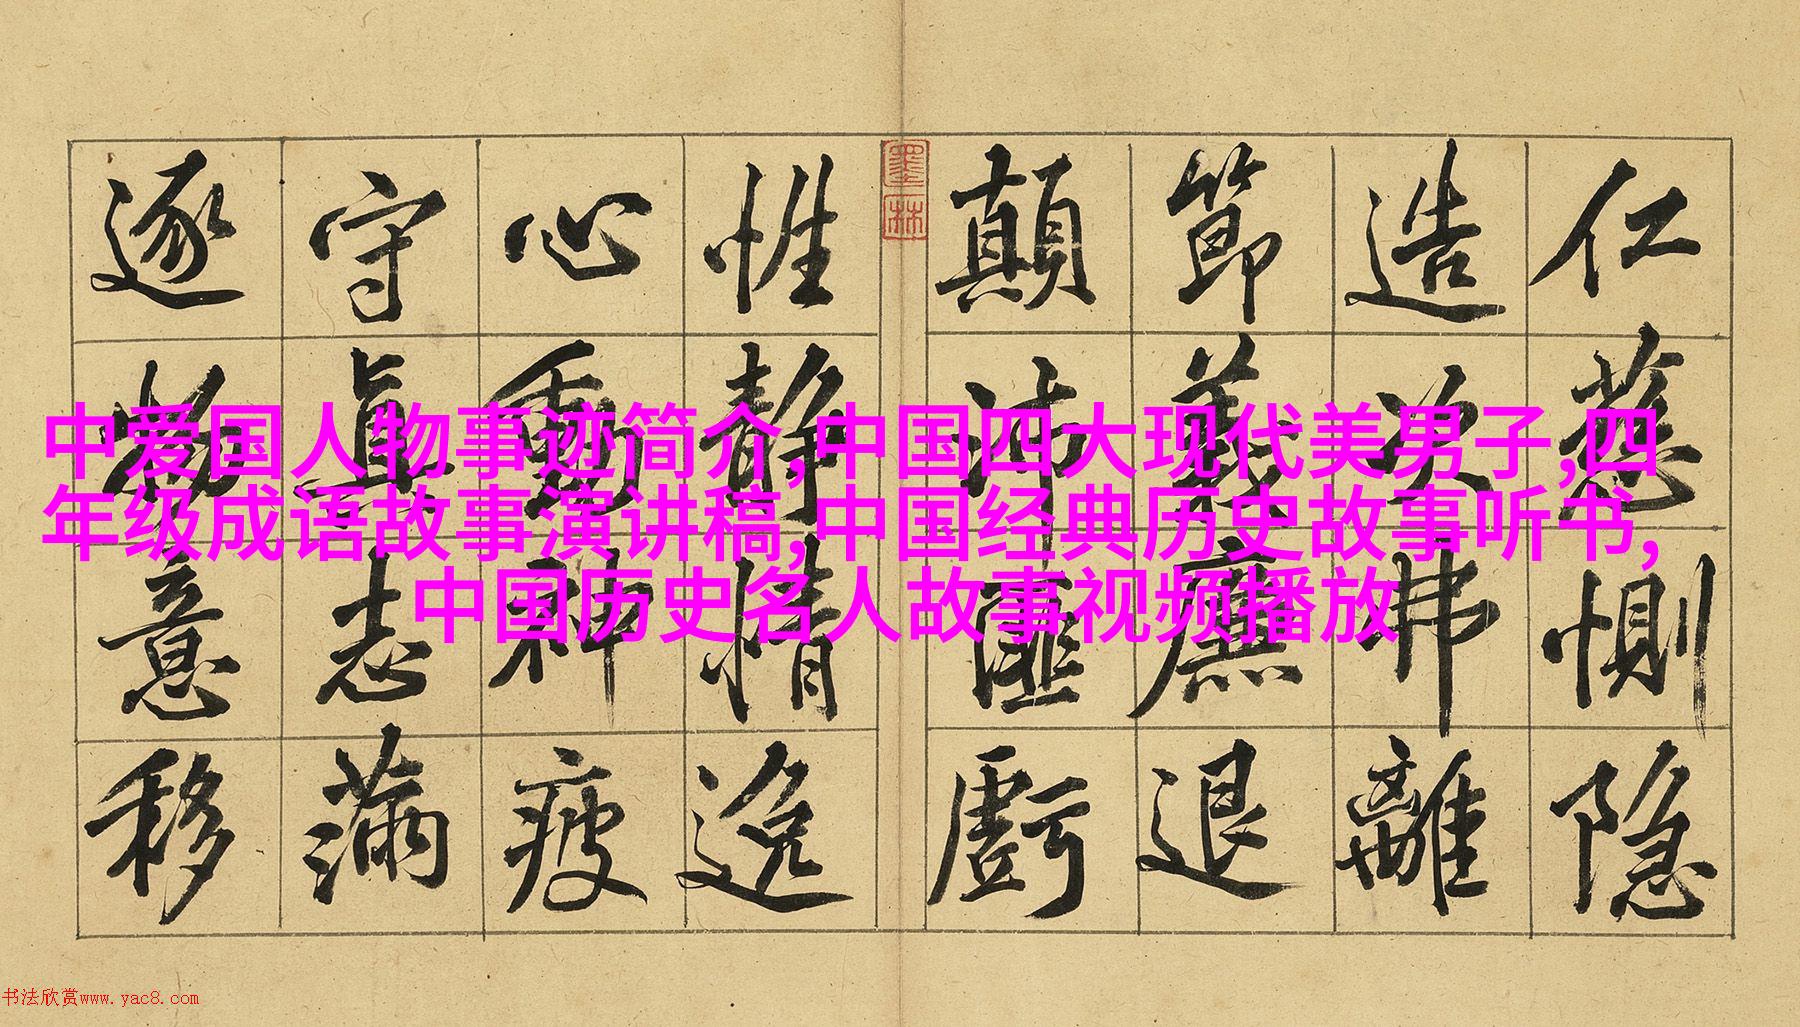 仁慈惻隐
造次弗離
節義廉退
顛沛匪虧
性静情逸
心動神疲
守真志滿
逐物意移
墨林
中爱国人物事迹简介,中国四大现代美男子,四
年级成语故事演讲稿,中国经典历史故事听书,
中国历史名人故事视频播放
书法欣赏www.yac8.com